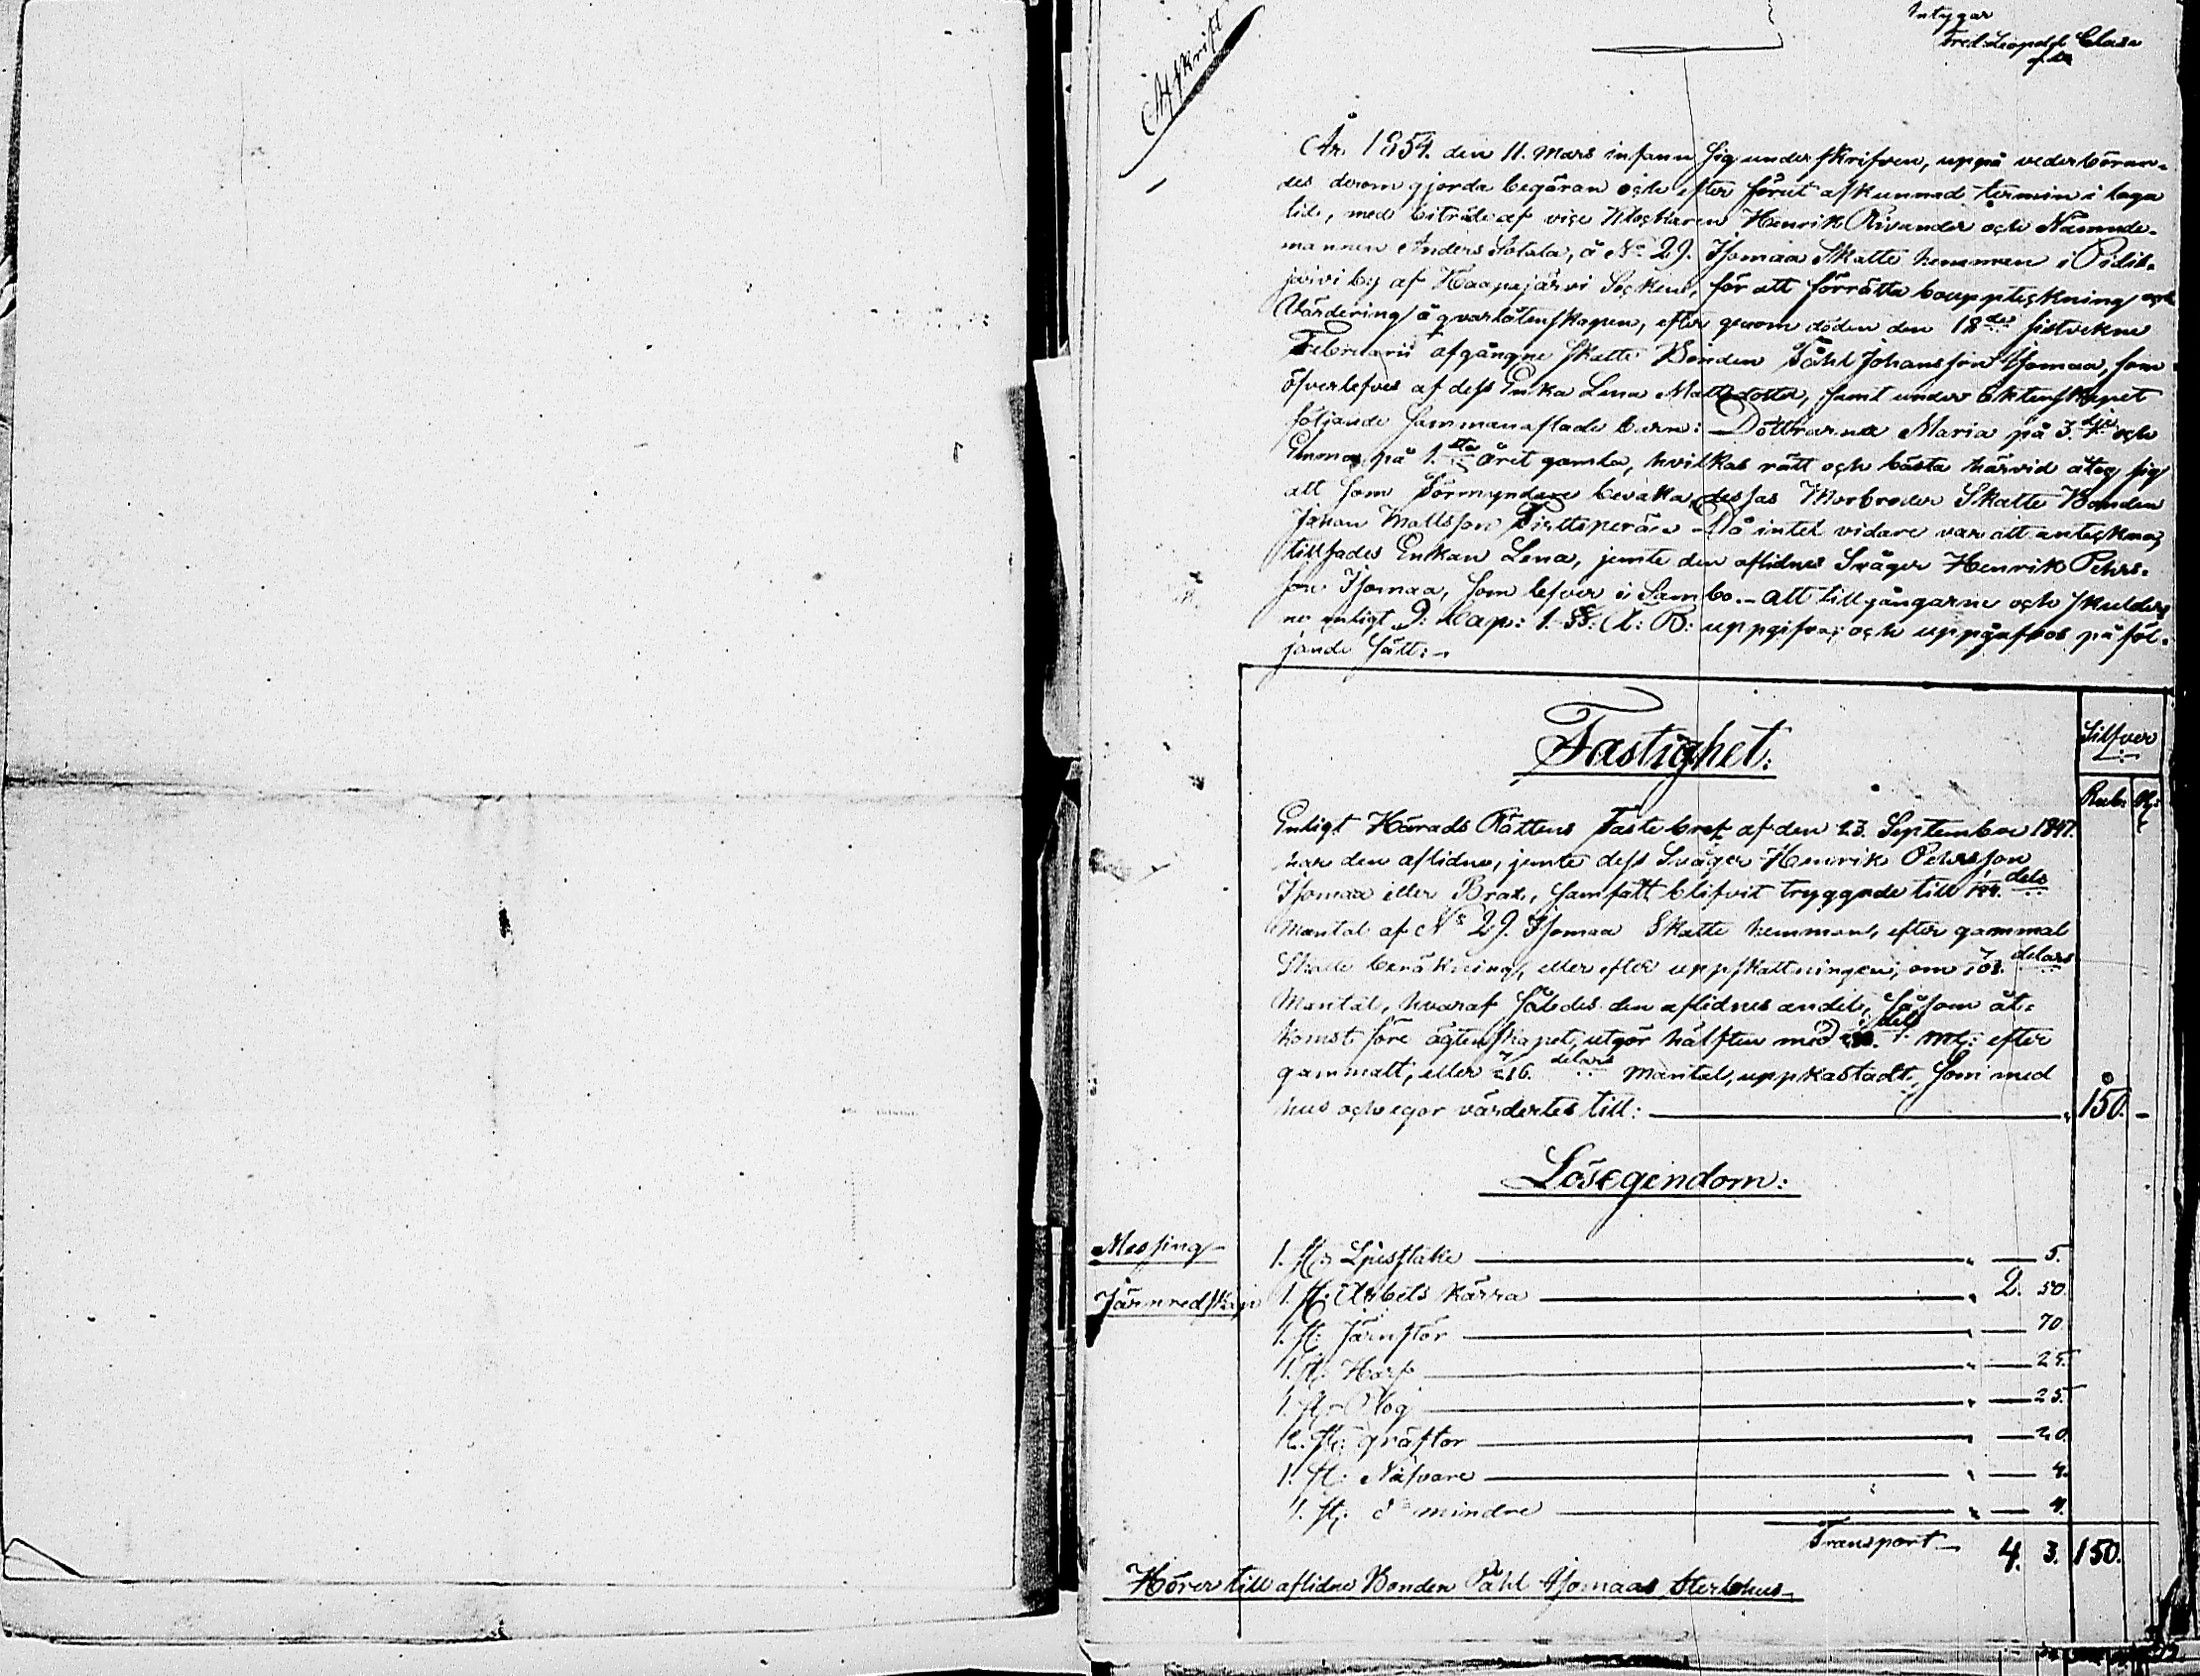 Intygar
Fred: Leopold Clase
Afskrift
År 1854. den 11. Mars infann sig underskrifven, uppå vederböran-
des derom gjorda begäran och efter förut afkunnad termin i laga
tid, med biträde af vice Klockaren Henrik Rivander och Nämnde-
mannen Anders Sotala, å No 29. Isomaa Skatte hemman i Pidis-
järvi by af Haapajärvi Socken, för att förrätta bouppteckning och
Värdering å qvarlåtenskapen, efter genom döden den 18de sistvekne
Februarii afgångne Skatte Bonden Påhl Johansson Isomaa, som
öfverlefves af dess Enka Lena Mattsdotter, samt under äktenskapet
följande sammanaflade barn: Döttrarna Maria på 3.dje och
Emma på 1.sta året gamla, hvilkas rätt och bästa härvid åtog sig
att som Förmyndare bevaka, dessas Morbroder Skatte Bonden
Johan Mattsson Pirttiperä. – Då intet vidare var att anteckna,
tillsades Enkan Lena, jemte den aflidnes Svåger Henrik Pehrs-
son Isomaa, som lefver i Sambo. – att tillgångarne och skulder-
ne enligt 9: Cap: 1. §§: Ä: B: uppgifva; och uppgåfvos på föl-
jande sätt: –
Fastighet:
Silfver
Rub: K:
Enligt Härads Rättens Fastebref af den 23. September 1847.
har den aflidne, jemte dess Svåger Henrik Pehrsson
Isomaa eller Brax, samfält blifvit tryggade till 1/144. dels
Mantal af No 29. Isomaa Skatte hemman, efter gammal
Skatte beräkning, eller efter uppskattningen, om 7/108. delars
Mantal, hvaraf således den aflidnes andel, såsom åt-
komst före ägtenskapet, utgör hälften med 1/288. dels Mtl: efter
gammalt, eller 7/216. delars Mantal, uppskattadt, som med
hus och egor värdertes till: 150. –
Lösegendom:
Messing 1. st: Ljusstake " — 5.
Järnredskap 1. st: Arbets kärra " 2. 50.
1. st: Järnstör " — 70.
1. st: Harf " — 25.
1. st: Plog " — 25.
2. st: gräftor " — 20.
1. st: Näfvare " — 4.
1. st: do mindre " — 4.
Transport 4. 3. 150.
Hörer till aflidne Bonden Påhl Isomaas Sterbhus